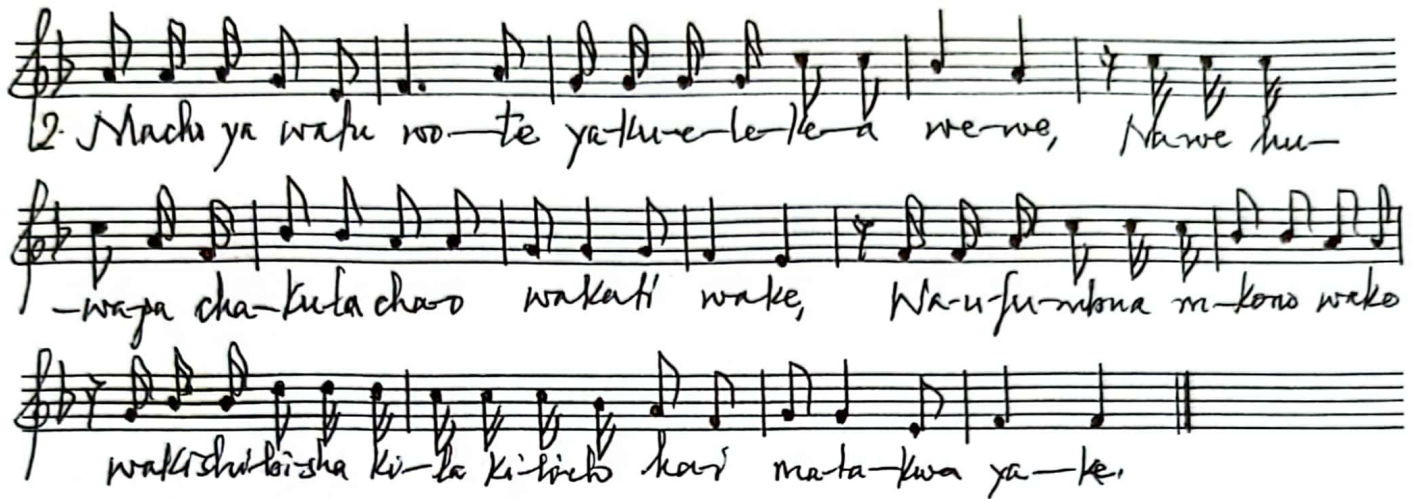 2. Macho ya watu wo-te ya-ku-e-le-ke-a we-we, Na-we hu-
-wa-pa cha-kula chao wakati wake, Wa-u-fu-mbua m-kono wako
wakishibisha ki-la ki-licho hai ma-ta-kwa ya-ke.